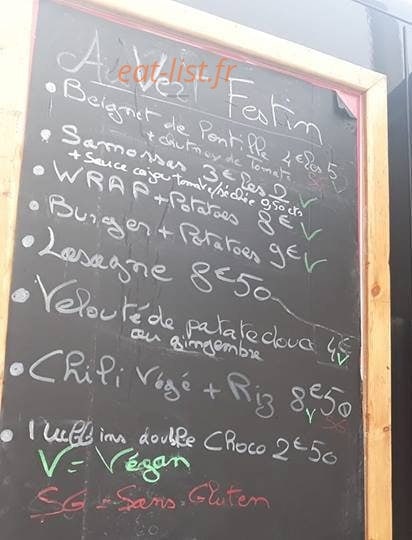 Au Vert Festin
eat-list.fr
• Beignet de lentille 4€ les 5
+ chutney de tomate SG
• Samossas 3€ les 2 V
+ Sauce cajou tomate séchée 0,50 cts
• WRAP + Potatoes 8€ V
• Burger + Patatoes 9€ V
• Lasagne 8€50
• Velouté de patate douce 4€
au gingembre V
• Chili Végé + Riz 8€50
V SG
• Muffins double Choco 2€50
V = Végan
SG = Sans Gluten